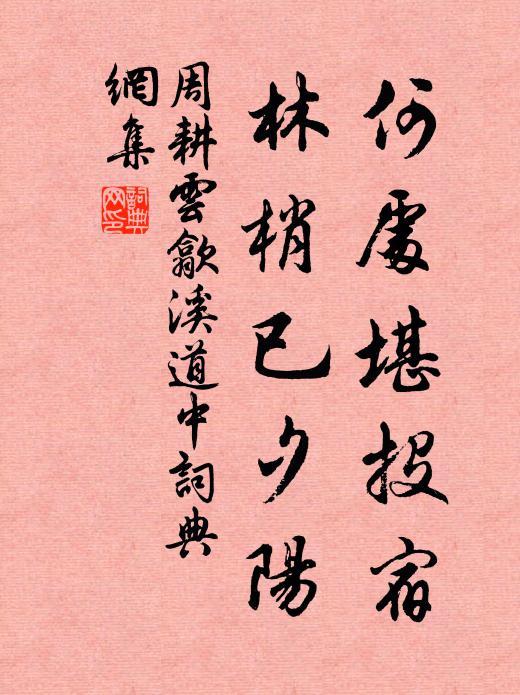 何處堪投宿
林梢已夕陽
周耕雲歙溪道中詞典
網集
詞典
网印